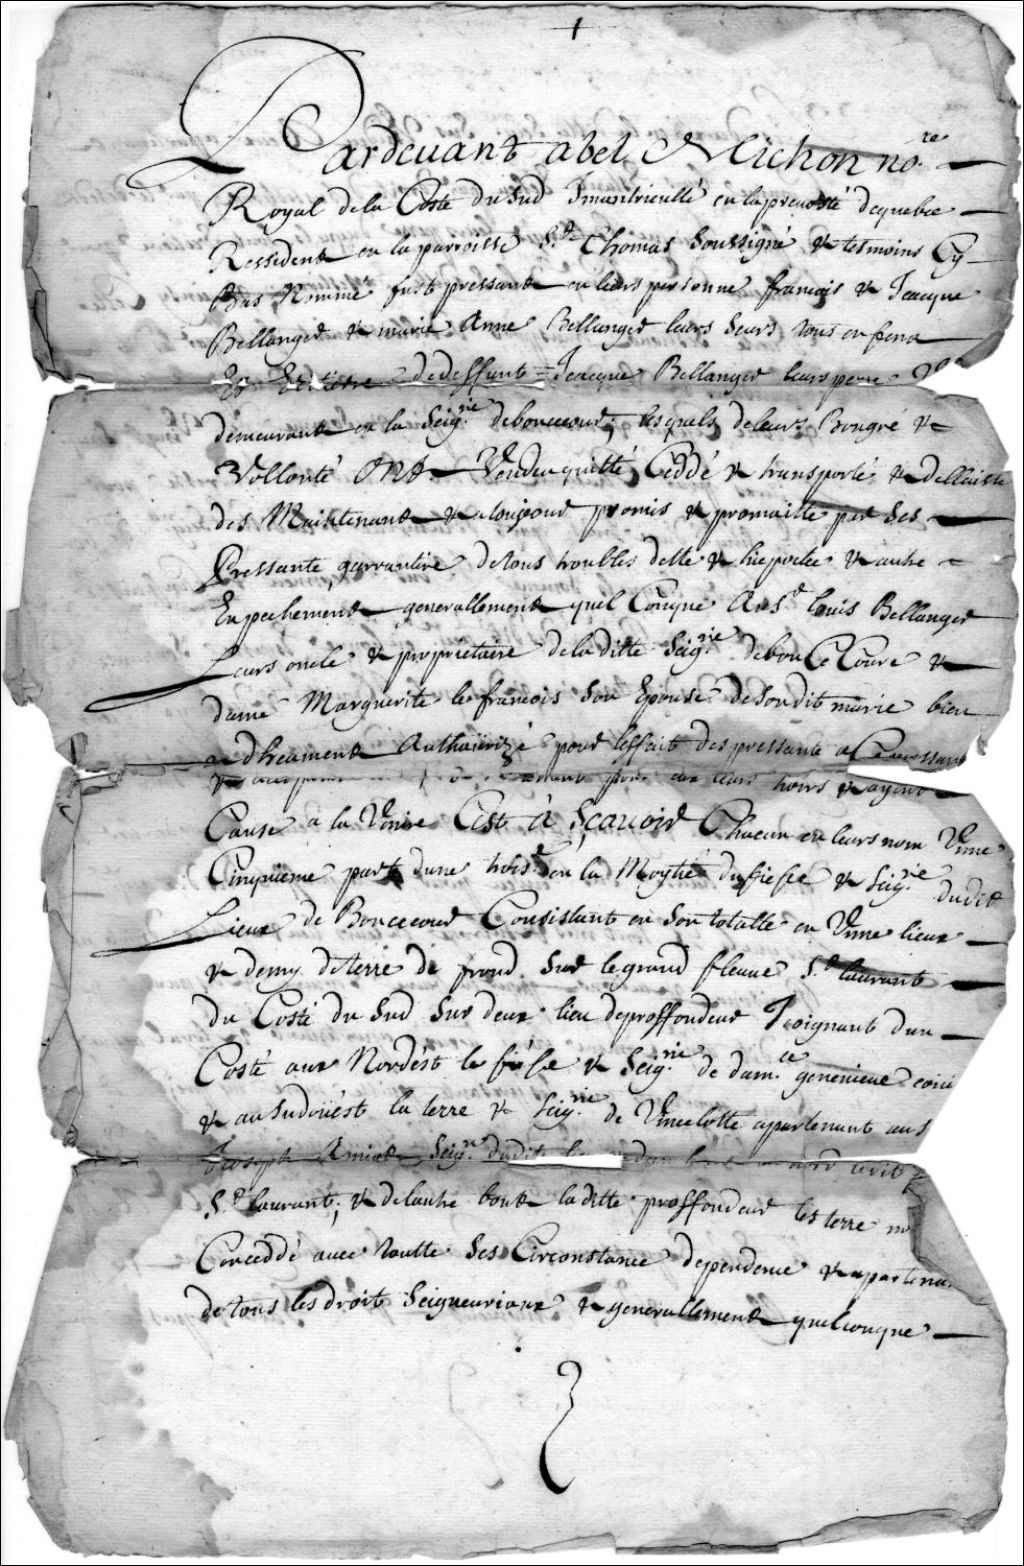 1
Pardeuant abel Michon no.re
Royal de la Coste du Sud Immatriculle en la preuosté dequebec
Ressident en la parroisse St. Thomas Soussigné & tesmoins Cy
Bas Nommé fust pressant en leurs personne francois & Jeacque
Bellanger & marie Anne Bellanger leurs seurs tous enfent
dedeffunt Jeacque Bellanger leurs perre
demeurant en la Seig.rie debonsecour, lesquels deleurs Bongré &
Vollonté Ont Vendu quitté, Ceddé & transporté & dellaissé
des Maintenant & atoujour promis & promaitte par Ses
Pressante garrantire detous troubles dette & hiepotec & autre
Enpechement generallement quel Conque Au St. louis Bellanger
Leurs oncle & proprietaire deladitte Seig.rie debon Ce Coure &
dame Marguerite le francois Son Epouse desondit marie bien
dheument Authorizé pour leffait des pressante a Ce
leurs hoirs & ayent
Cause a la Venire Cest à Scauoir Chacun en leurs nom Vnne
Cinquieme part dune trois.e en la Moytié dufiefee & Seig.rie dudit
Lieux de Boncecour Consistant en Son totalle en Vnne lieux
& demy deterre de frond Sur legrand fleuue St. laurant
du Costé du Sud Sur deux lieu deproffondeur Jeoignant dun
Costé aux Nordést le fiéfe & Seig.rie de dam.ce geneuieue
& au Sudoüést la terre & Seig.rie de Vincelotte apartenant au S
Jeoseph Amiot Seig.r dudit
St. laurant; & delautre bout laditte proffondeur les terre
Conceddé auec toutte Ses Circonstance dependence & apartenan
detous les droit Seigneuriaux & generallement quelconque